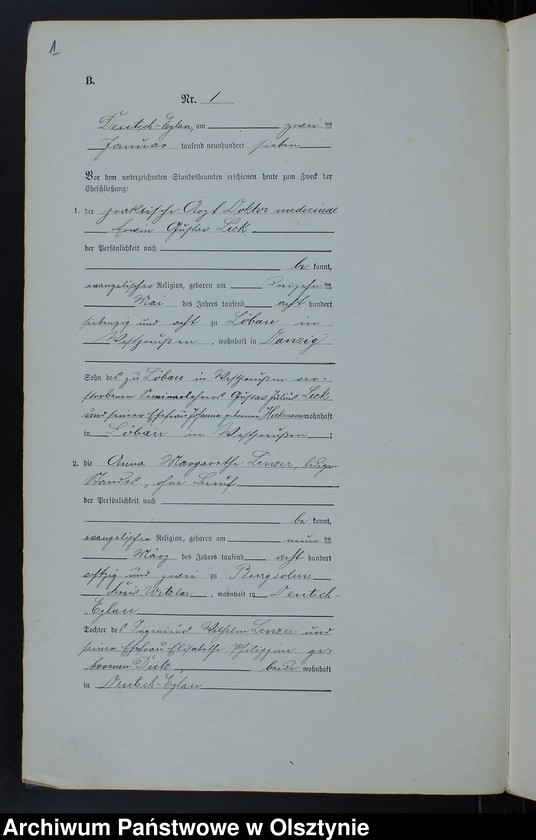 1
B.
Nr. 1
Deutsch-Eylau, am zwei ten
Januar tausend neunhundert sieben
Vor dem unterzeichneten Standesbeamten erschienen heute zum Zweck der
Eheschließung:
1. der praktische Arzt Doktor medicinae
Erwin Gustav Liek
der Persönlichkeit nach
be kannt,
evangelischer Religion, geboren am dreizehn ten
Mai des Jahres tausend acht hundert
siebenzig und acht zu Löbau in
Westpreußen, wohnhaft in Danzig
Sohn des zu Löbau in Westpreußen ver-
storbenen Seminarlehrers Gustav Julius Liek
und seiner Ehefrau Johanna geborene Heckmann wohnhaft
in Löbau in Westpreußen ;
2. die Anna Margarethe Lenser, ledigen
Standes, ohne Beruf
der Persönlichkeit nach
be kannt,
evangelischer Religion, geboren am neun ten
März des Jahres tausend acht hundert
achtzig und zwei zu Burgsolms
Kreis Wetzlar, wohnhaft in Deutsch-
Eylau
Tochter des Ingenieurs Wilhelm Lenser und
seiner Ehefrau Elisabethe Philippine ge-
borenen Dick, beide wohnhaft
in Deutsch-Eylau
Archiwum Państwowe w Olsztynie